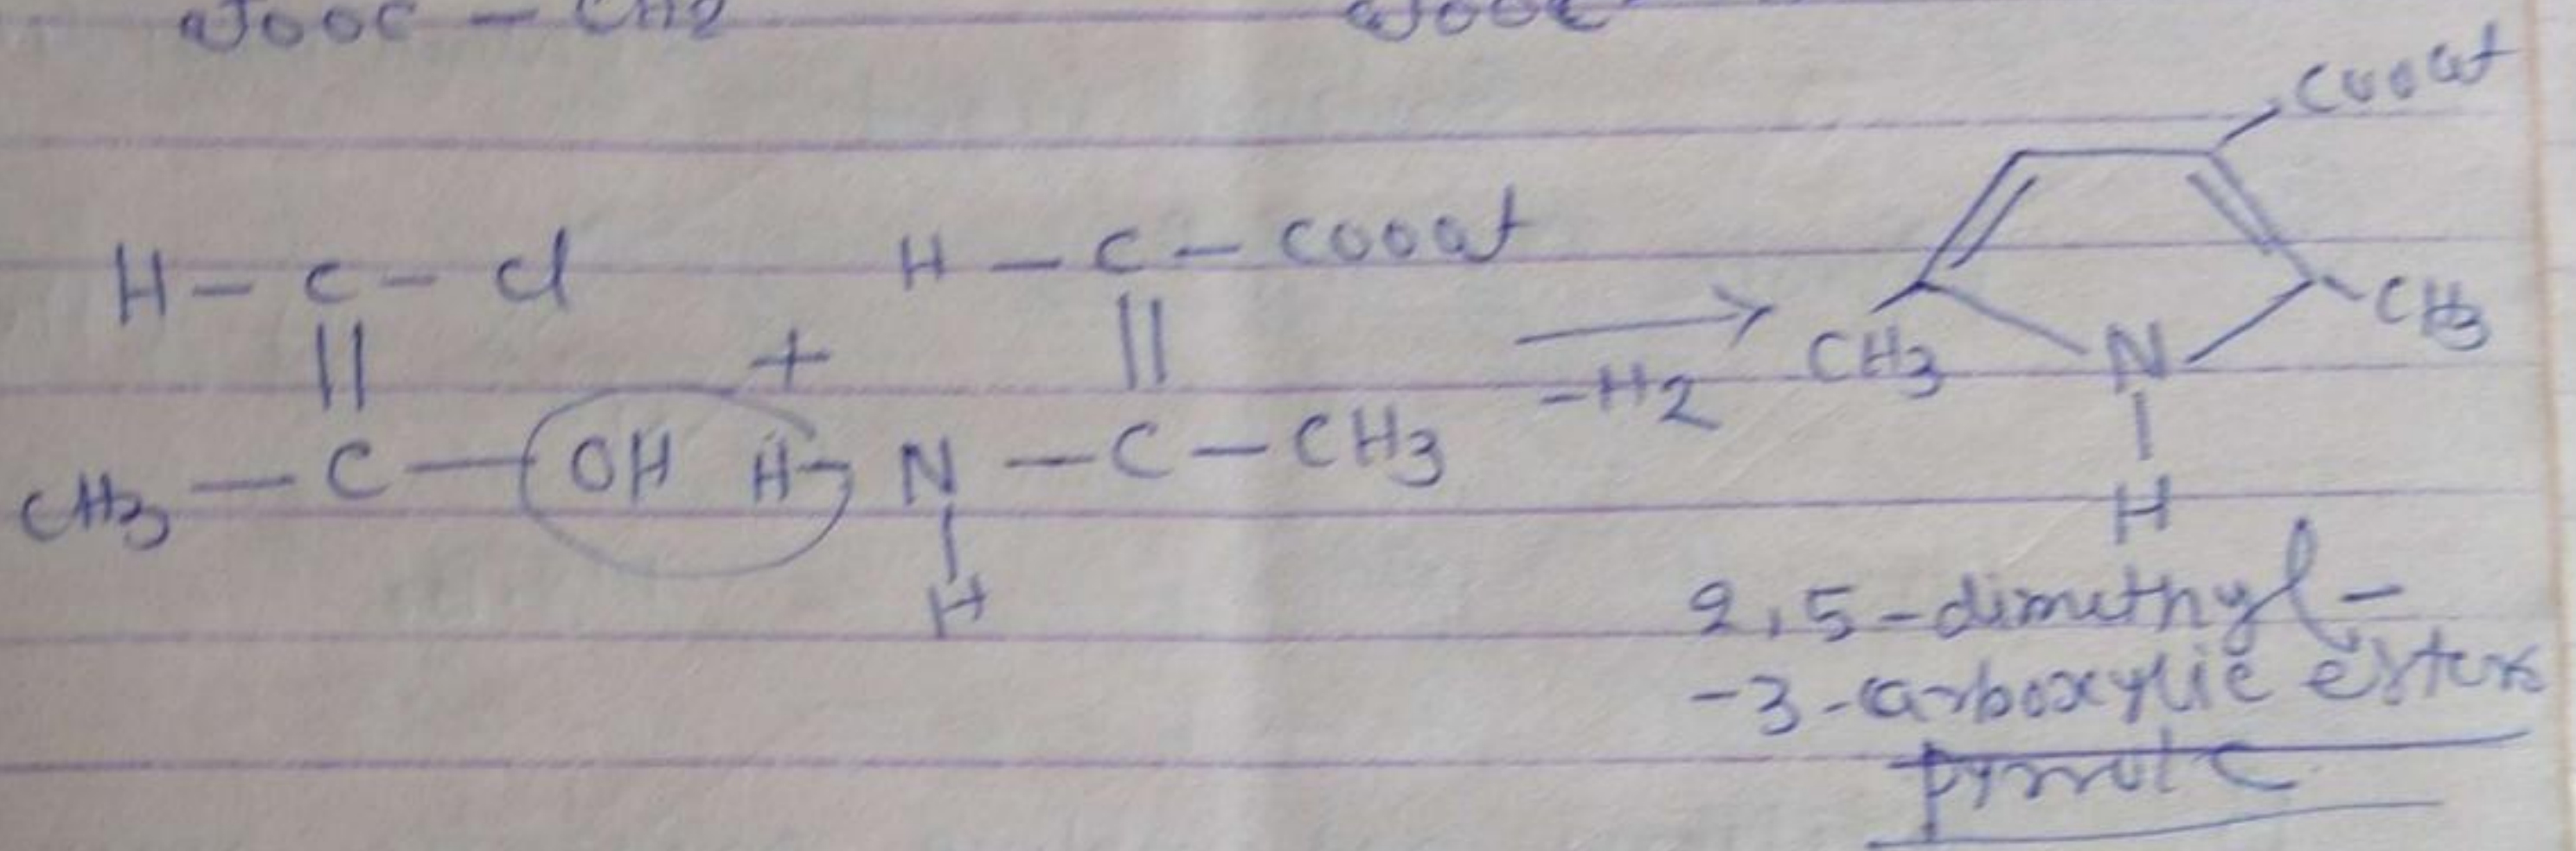 COOC - CH2 COOC
COOet
H - C - Cl H - C - COOet
+
CH3 - C - OH H - N - C - CH3 → -H2 CH3 N CH3
H H
2,5-dimethyl-
-3-carboxylic ester
pyrrole